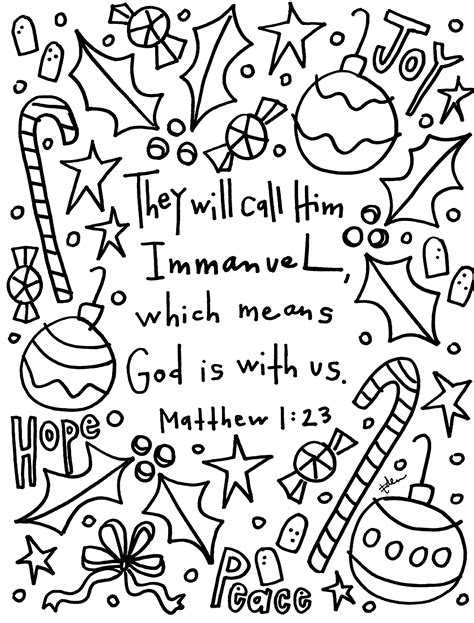 JOY
They will call Him
Immanuel,
which means
God is with us.
Matthew 1:23
HOPE
Peace